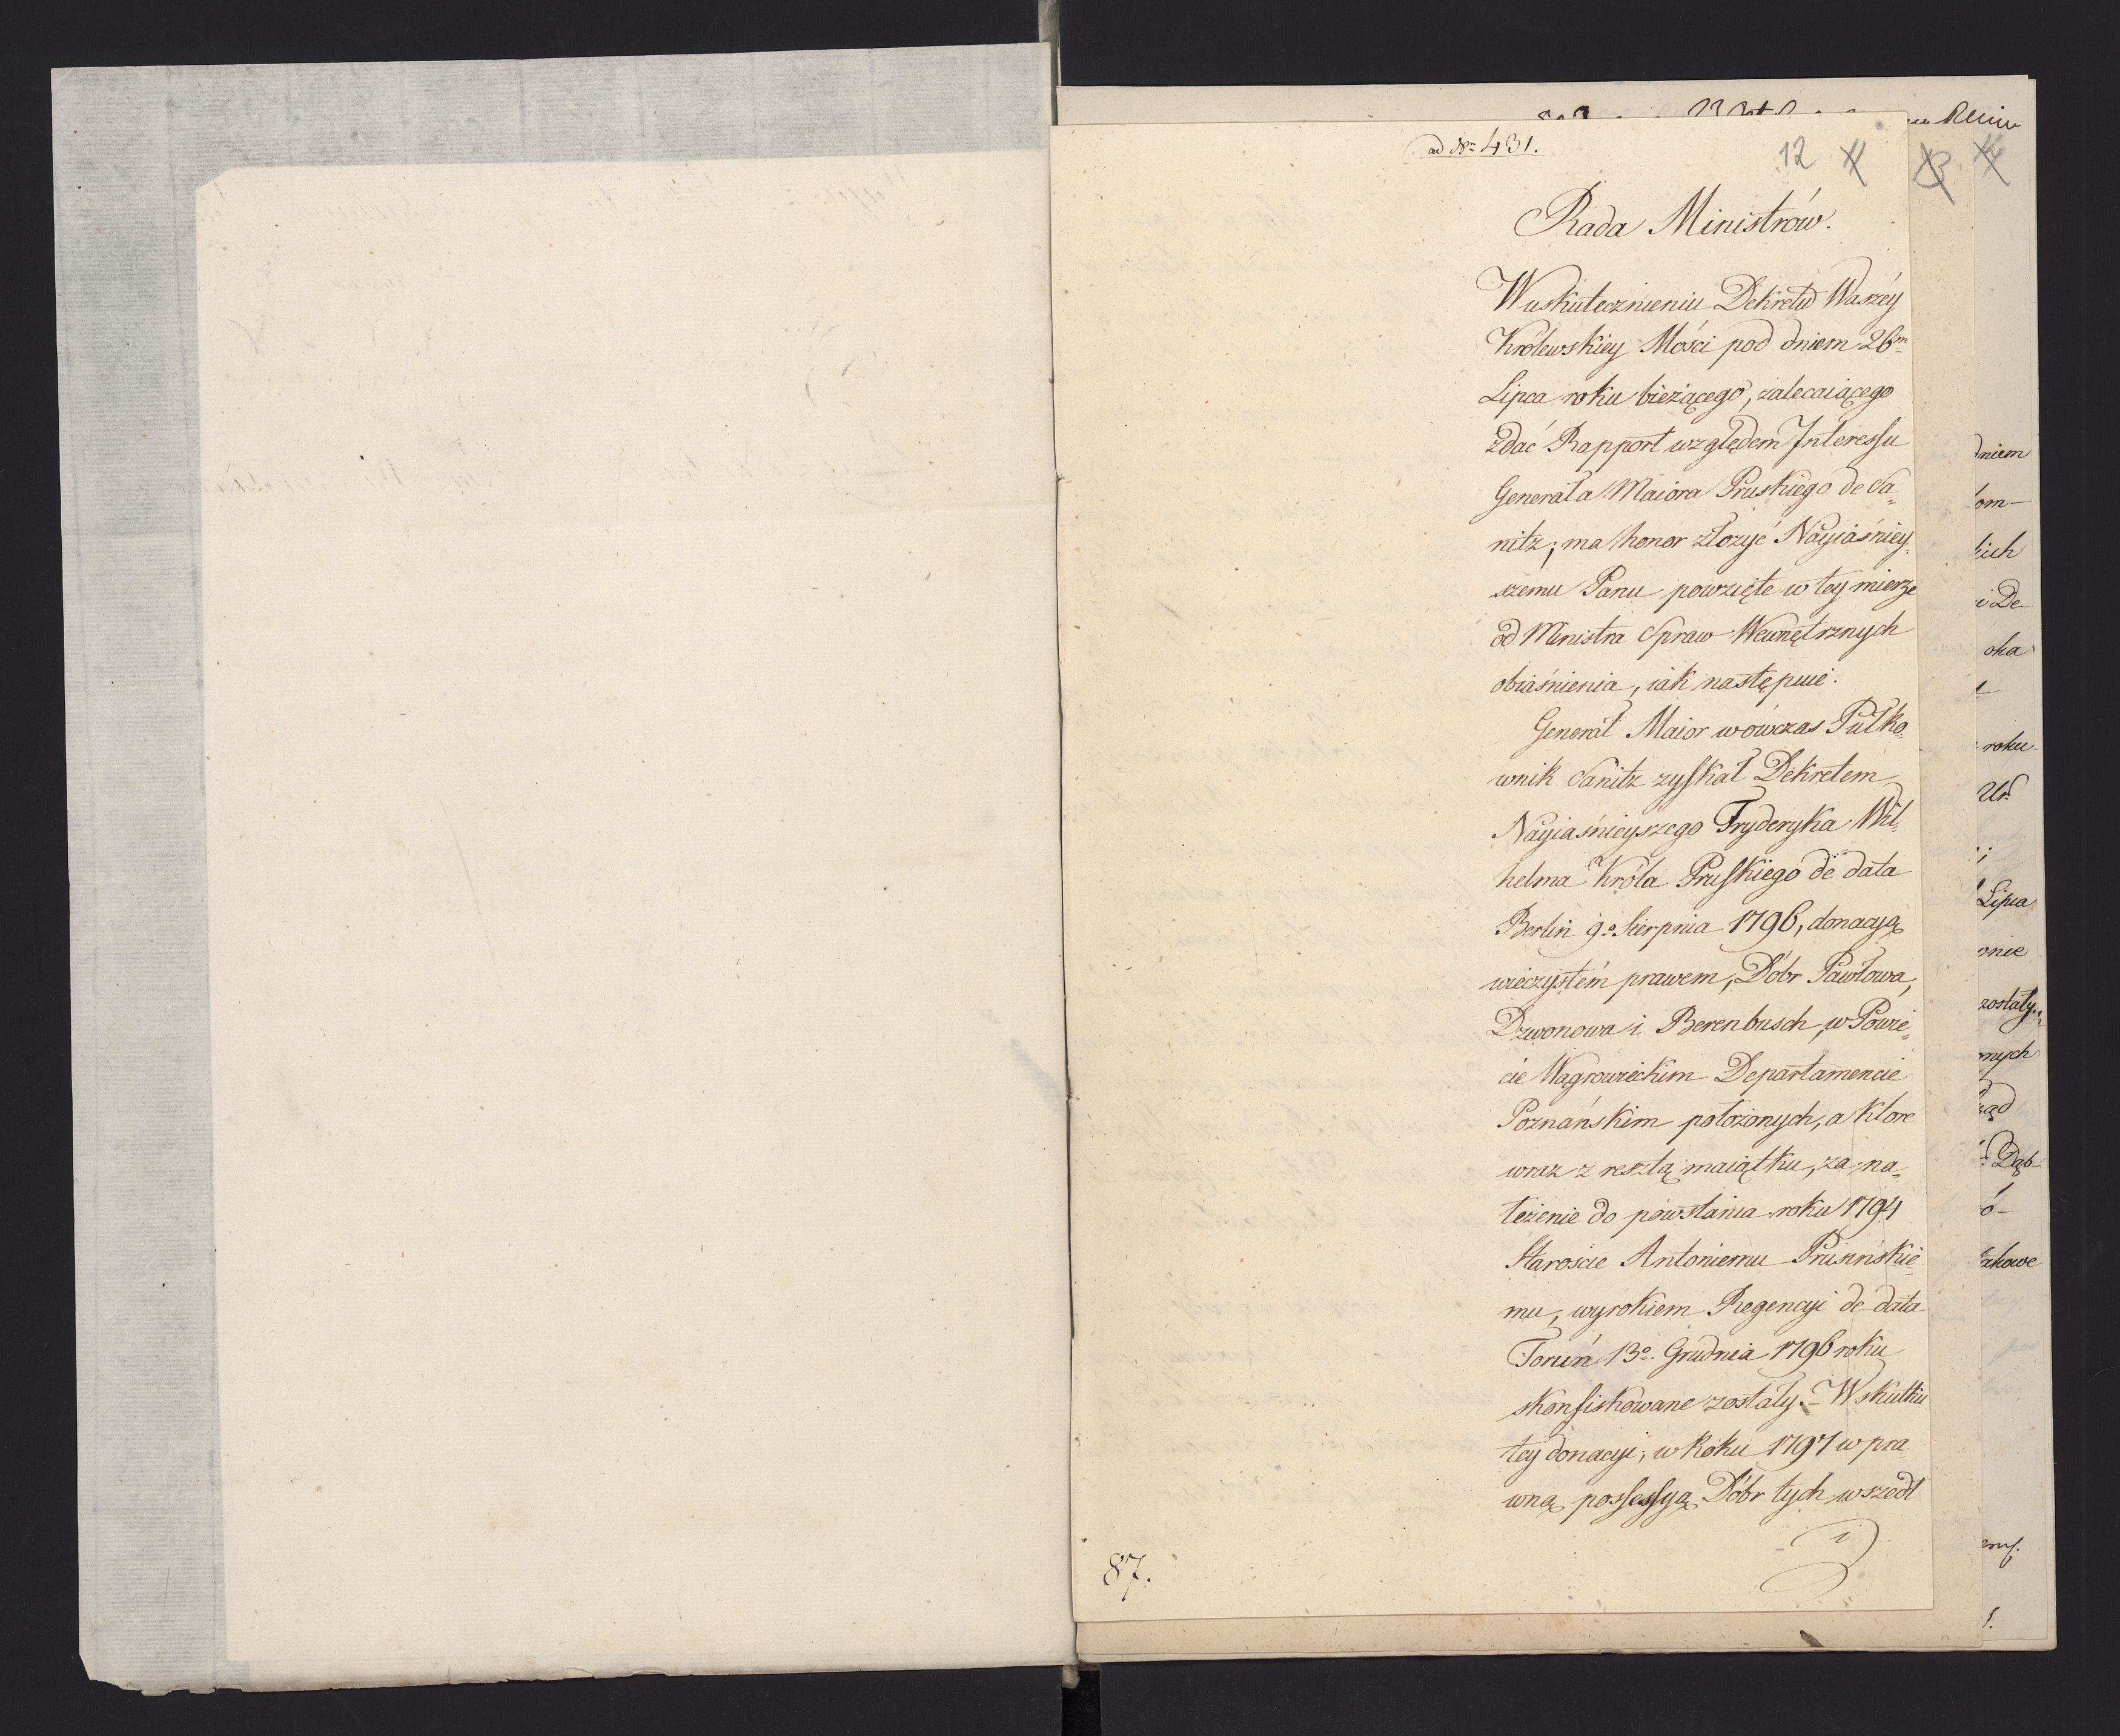 ad Nº 431.
12
Rada Ministrów.
W uskutecznieniu Dekretu Waszéy
Królewskiey Mości pod dniem 26m
Lipca roku bieżącego, zalecaiącego
zdać Rapport względem Interessu
Generała Maiora Pruskiego de Ca„
nitz; ma honor złożyć Nayiaśniey„
szemu Panu powzięte w tey mierze
od Ministra Spraw Wewnętrznych
obiaśnienia, iak następuie.
Generał Maior wówczas Pułko„
wnik Canitz zyskał Dekretem
Nayiaśnieyszego Fryderyka Wil„
helma Króla Pruskiego de data
Berlin 9º Sierpnia 1796, donacyą
wieczystém prawem, Dóbr Pawłowa,
Dzwonowa i Berenbusch, w Powie„
cie Wągrowieckim Departamencie
Poznańskim położonych, a które
wraz z resztą maiątku, za na„
leżenie do powstania roku 1794
Staroście Antoniemu Prusinskie„
mu, wyrokiem Regencyi de data
Toruń 13º. Grudnia 1796 roku
skonfiskowane zostały. – W skutku
tey donacyi, w Roku 1797 w pra„
wną possessyą Dóbr tych wszedł
i
87.
dniem
om–
kich
i De
oka
roku
Ur.
Lipca
onie
zostały.
onych
ząd
Dąb–
ó–
zkowe